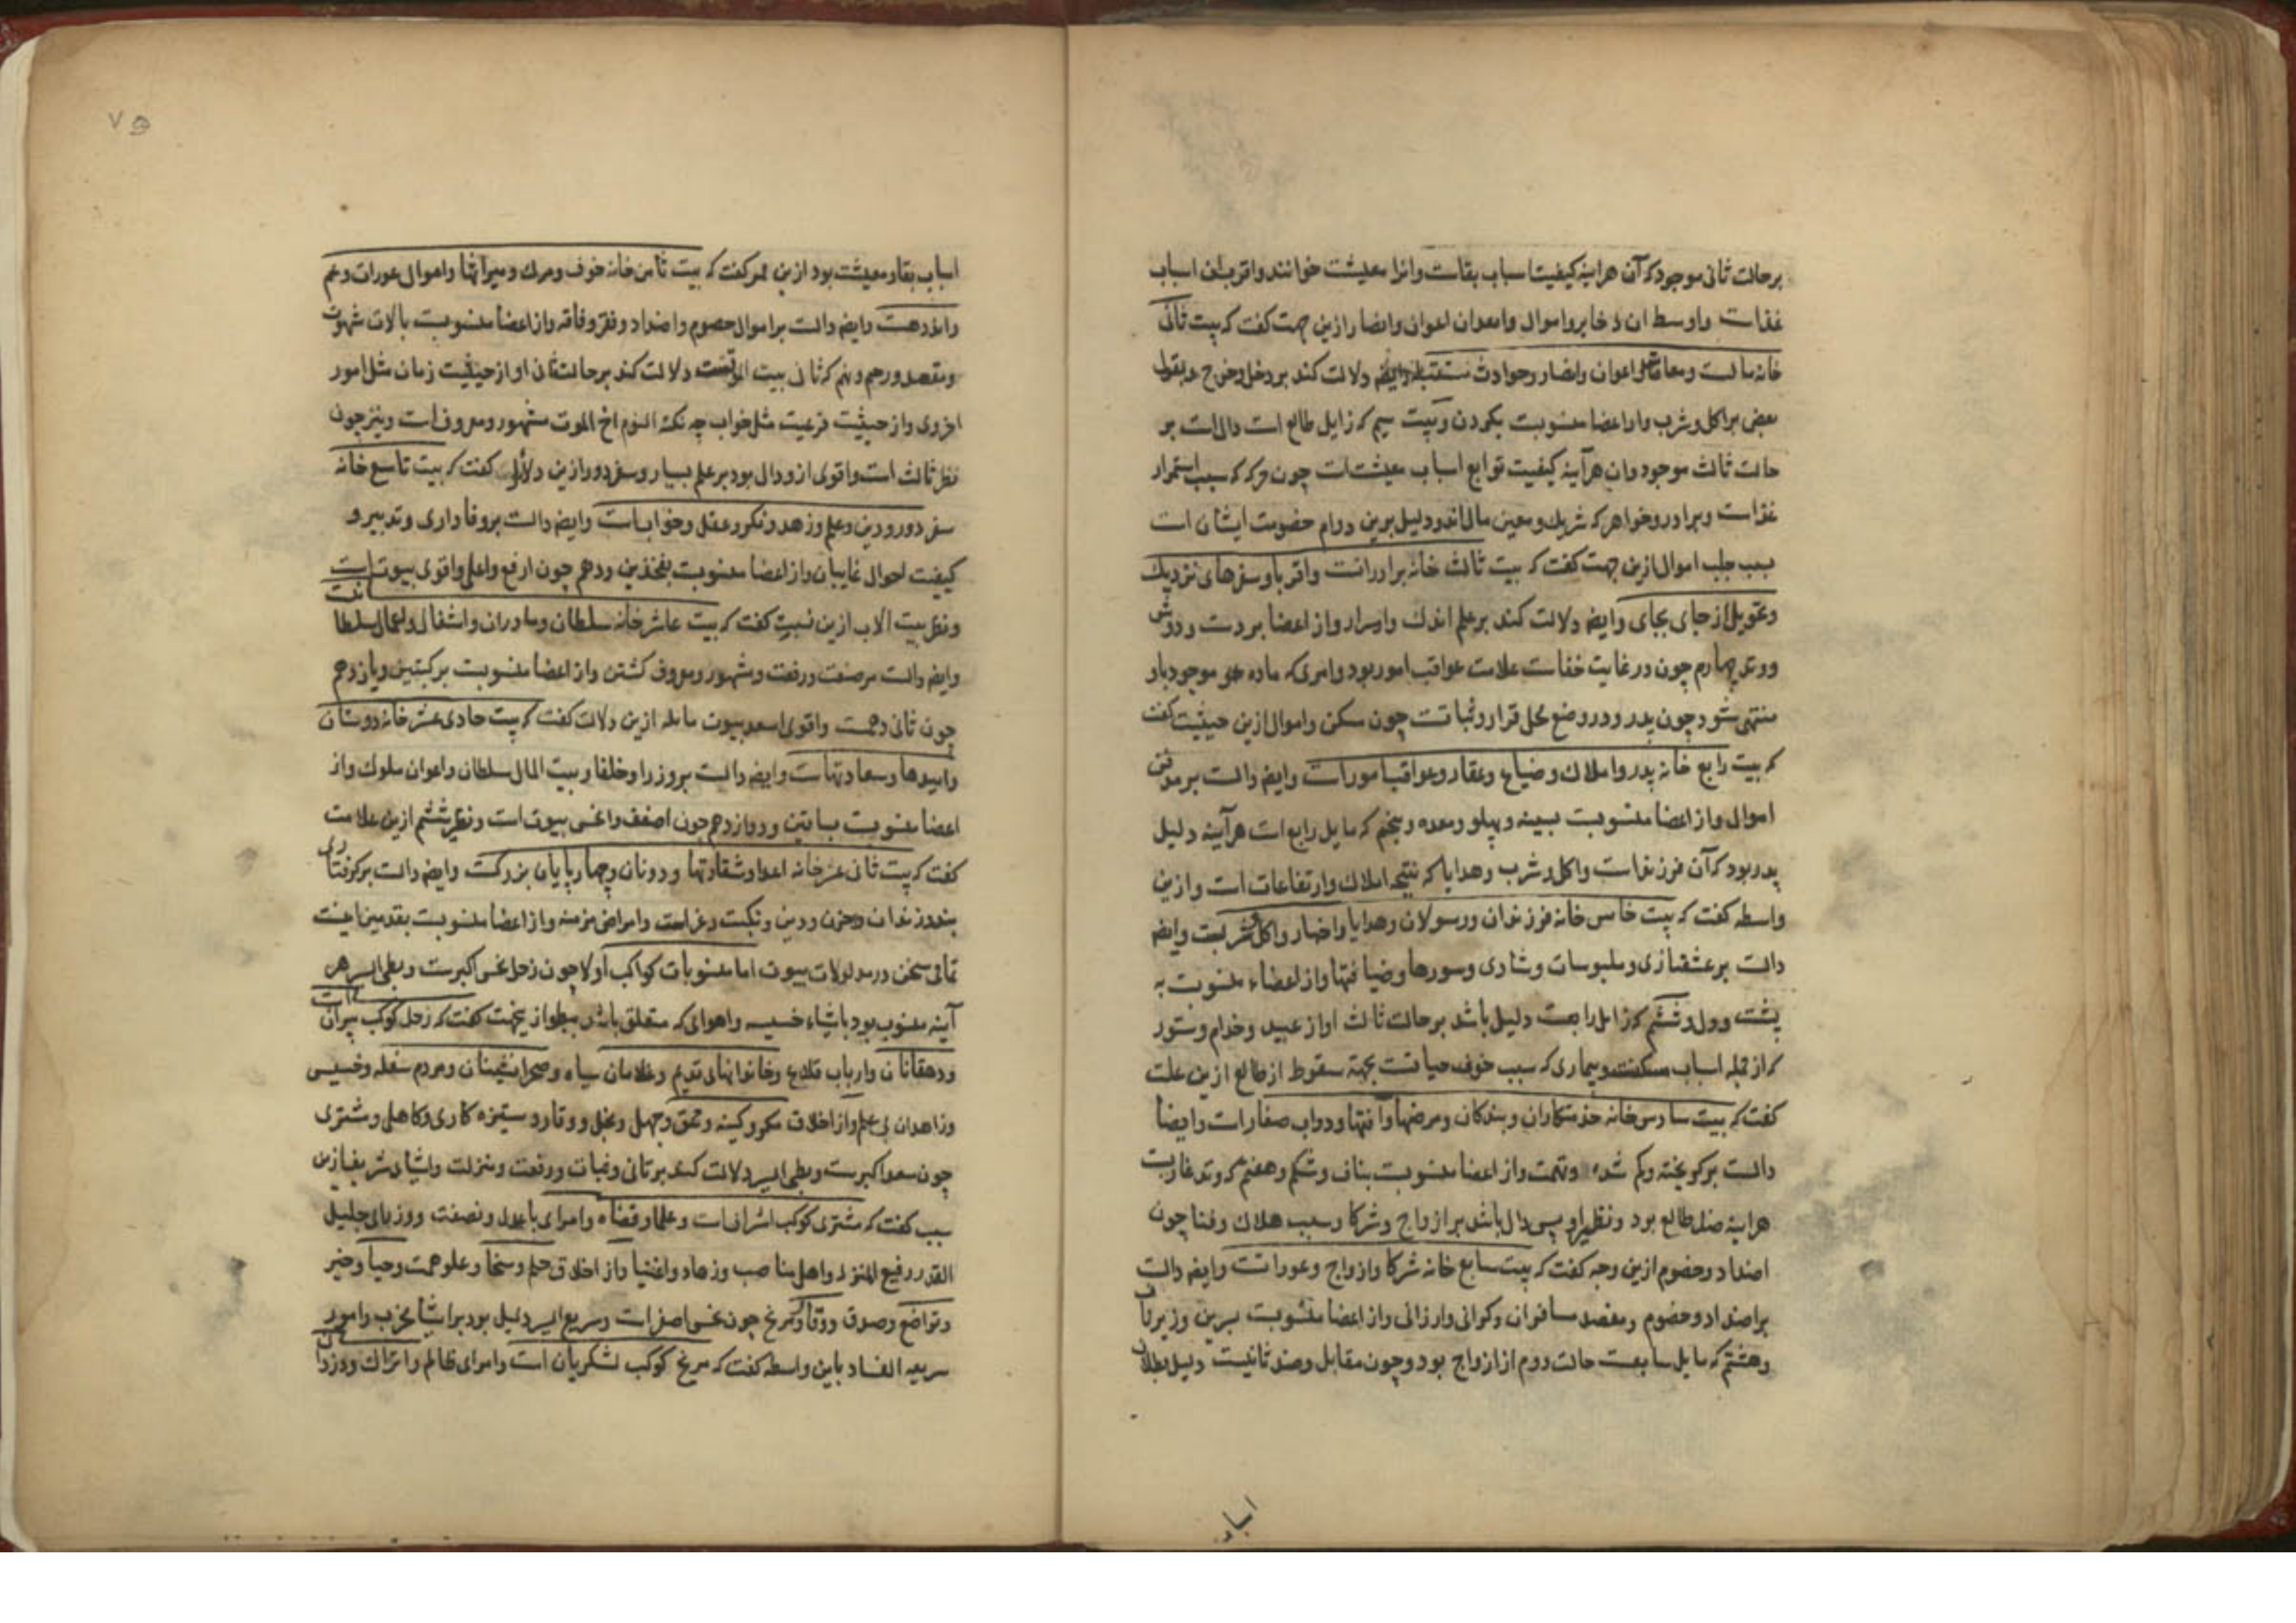 بر حالت ثانی موجود که آن هراینه کیفیت اسباب بقاست وانرا معیشت خوانند واقرب این اسباب
غذاست واوسط ان ذخایر واموال وابعدان اعوان وانصار ازین جهت کفت که بیت ثانی
خانه مالست ومعاش واعوان وانصار وحوادث مستقبله وایضه دلالت کند بر دخل وخرج وبقول
بعضی بر اکل وشرب واز اعضا منسوبست بکردن وبیت سیم که زایل طالع است دال است بر
حالت ثالث موجود وان هرآینه کیفیت توابع اسباب معیشت است چون حرکه که سبب استمرار
غذاست وبرادر وخواهر که شریک ومعین مال اند ودلیل برین دوام خصومت ایشان است
بسبب جلب اموال ازین جهت کفت که بیت ثالث خانه برادرانست واقربا وسفرهای نزدیک
وتحویل از جای بجای وایضه دلالت کند بر علم اندک واسرار واز اعضا بر دست ودوش
ووتد چهارم چون در غایت خفاست علامت عواقب امور بود وامری که ماده موجود باو
منتهی شود چون پدر ودر وضع محل قرار وثباتست چون مسکن واموال ازین حیثیت کفت
که بیت رابع خانه پدر واملاک وضیاع وعقار وعواقب امور است وایضه دالست بر
اموال واز اعضا منسوبست بسینه وپهلو ومعده وپنجم که مایل رابع است هرآینه دلیل
پدر بود که آن فرزنداست واکل وشرب وهدایا که نتیجه املاک وارتفاعات است وازین
واسطه کفت که بیت خامس خانه فرزندان ورسولان وهدایا واخبار واکل وشربست وایضه
دالست بر عشقبازی وملبوسات وشادی وسورها وضیافتها واز اعضاء منسوبست به
پشت وول وششم که زایل رابعست دلیل باشد بر حالت ثالث او از عبید وخدام وستور
که از قبله اسباب مسکنت وبیماری که سبب خوف حیاتست بجهة سقوط از طالع ازین علت
کفت که بیت سادس خانه خدمتکاران وبندکان ومرضها وآفتها ودواب صغار است وایضا
دالست بر کریخته وکم شده وتهمت واز اعضا منسوبست بناف وشکم وهفتم که وتد غاربست
هراینه ضد طالع بود ونظیر او پس دال باشد بر ازواج وشرکا وسبب هلاک وفنا چون
اضداد وخصوم ازین وجه کفت که بیت سابع خانه شرکا وازواج وعوراتست وایضه دالست
بر اضداد وخصوم ومقصد مسافران وکرانی وارزانی واز اعضا منسوبست بسرین وزیر ناف
وهشتم که مایل سابعست حالت دوم از ازواج بود وچون مقابل وضد ثانیست دلیل بطلان
اسباب
۷۵
اسباب بقا ومعیشت بود ازین ممر کفت که بیت ثامن خانه خوف ومرک ومیراثها واموال عورات وغم
واندهست وایضه دالست بر اموال خصوم واضداد وفقر وفاقه واز اعضا منسوبست بالات شهوت
ومقعد ورحم ونهم که ثانی بیت الموتست دلالت کند بر حالت ثانی او از حیثیت زمان مثل امور
اخروی واز حیثیت فرعیت مثل خواب چه نکته النوم اخ الموت مشهور ومعروفست ونیز چون
نظر ثالث است واقوی از ودال بود بر علم بسیار وسفر دور ازین دلایل کفت که بیت تاسع خانه
سفر دور ودین وعلم وزهد وفکر وعقل وخوابهاست وایضه دالست بر وفاداری وتدبیر و
کیفیت احوال غایبان واز اعضا منسوبست بفخذین ودهم چون ارفع واعلی واقوی بیوت است
ونظر بیت الاب ازین نسبت کفت که بیت عاشر خانه سلطان ومادران واشغال واعمال سلطانیست
وایضه دالست بر صنعت ورفعت ومشهور ومعروف کشتن واز اعضا منسوبست برکبتین ویازدهم
چون ثانی دهمست واقوی اسعد بیوت مایله ازین دلالت کفت که بیت حادی عشر خانه دوستان
وامیدها وسعادتهاست وایضه دالست بر وزرا وخلفا وبیت المال سلطان واعوان ملوک واز
اعضا منسوبست بساقین ودوازدهم چون اضعف وانحس بیوت است ونظیر ششم ازین علامت
کفت که بیت ثانی عشر خانه اعدا وشقاوتها ودونان وچهارپایان بزرکست وایضه دالست بر کرفتاری
بند وزندان وحزن ودین ونکبت وغرامت وامراض مزمنه واز اعضا منسوبست بقدمین اینست
تمامی سخن در مدلولات بیوت اما منسوبات کواکب اولا چون زحل نحس اکبرست وبطی السیر هر
آینه منسوب بود باشیاء خسیسه واهوای که متعلق باشد ببطو ازینجهت کفت که زحل کوکب پیران است
ودهقانان وارباب قلاع وخانوادهای قدیم وغلامان سیاه وصحرانشینان ومردم سفله وخسیس
وزاهدان بی علم واز اخلاق مکر وکینه وحمق وجهل وبخل ووقار وستیزه کاری وکاهلی ومشتری
چون سعد اکبرست وبطی السیر دلالت کند بر تانی وثبات ورفعت ومنزلت واشیای شریفه ازین
سبب کفت که مشتری کوکب اشراف است وعلما وقضاه وامرای با عدل ونصفت ووزرای جلیل
القدر رفیع المنزله واهل مناصب وزهاد واغنیا واز اخلاق حلم وسخا وعلو همت وحیا وخیر
وتواضع وصدق ووقار ومریخ چون نحس اصغر است وسریع السیر دلیل بود بر اشیا مخرب وامور
سریعه الفساد باین واسطه کفت که مریخ کوکب لشکریان است وامرای ظالم واتراک ودزدان